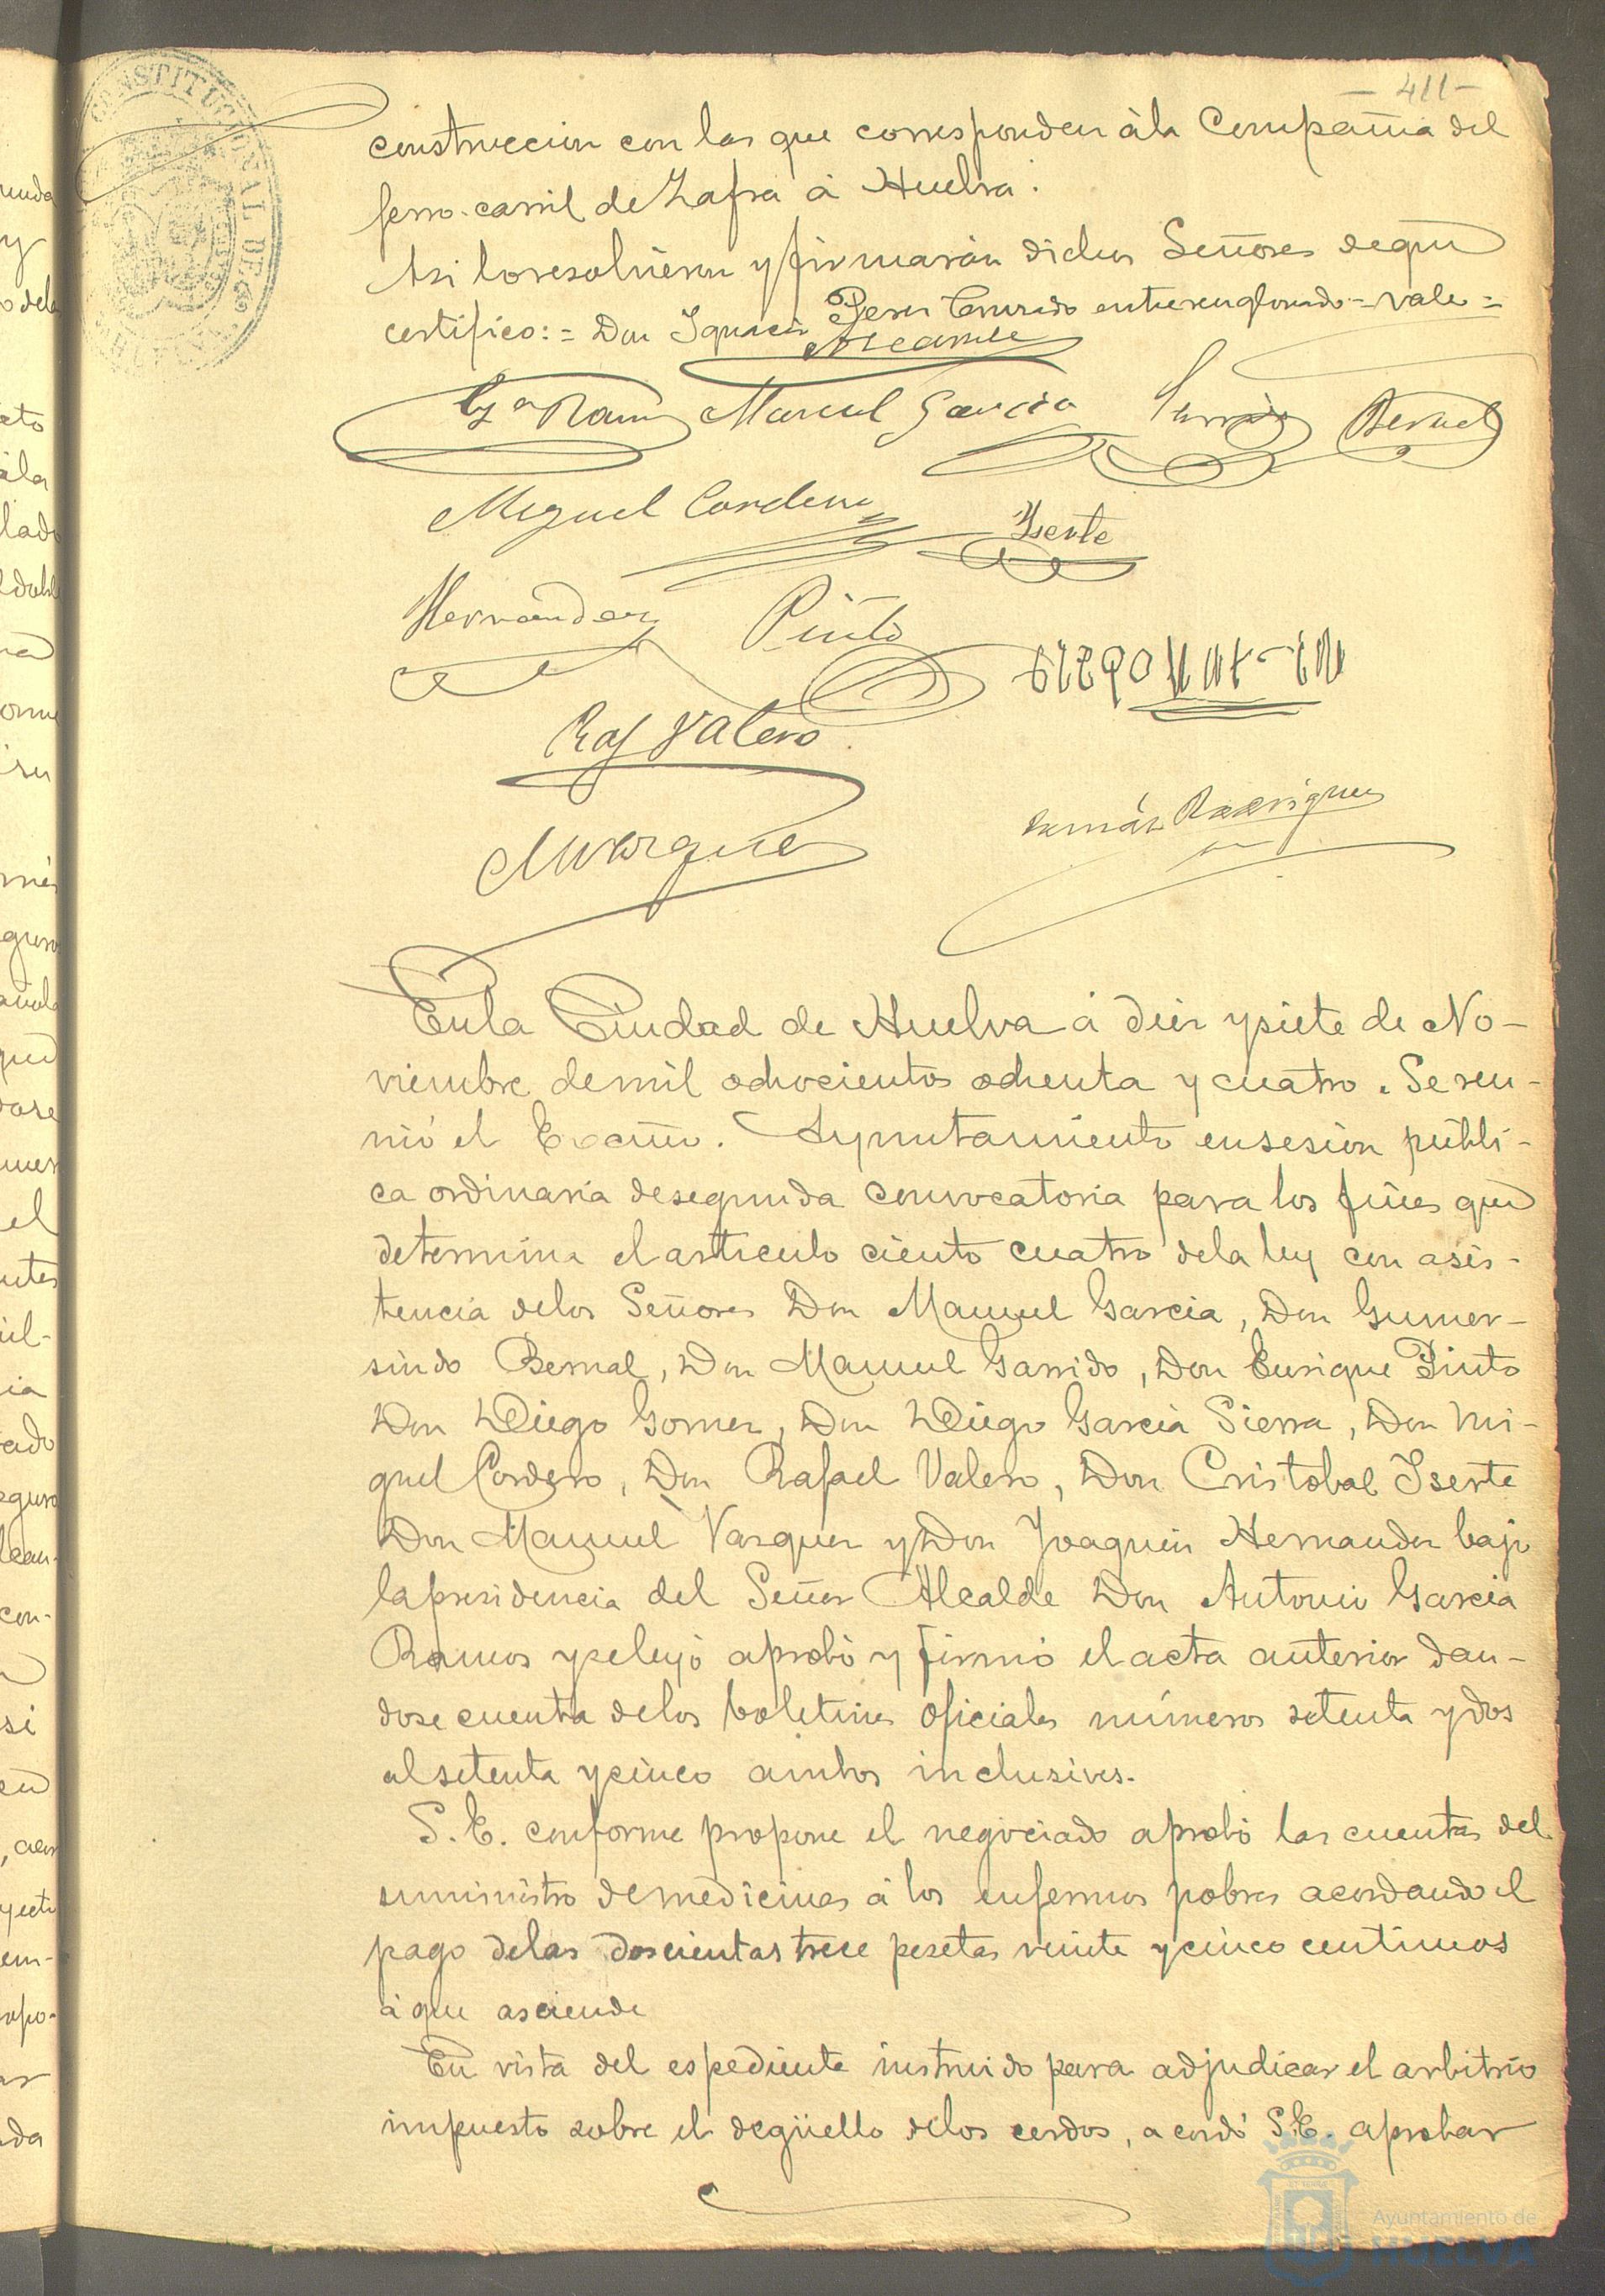 - 411 -
construccion con las que corresponden á la Compañia del
ferro-carril de Zafra á Huelva.
Asi lo resolvieron y firmarán dichos Señores de que
certifico: = Don Ignacio
entrerenglonado = vale =
Ga Ramos Manuel Garcia Bernal
Miguel Cordero Iserte
Hernandez Pinto
Raf Valero
Tomás Rodriguez
M Vazquez
En la Ciudad de Huelva á diez y siete de No-
viembre de mil ochocientos ochenta y cuatro. Se reu-
nió el Excmo. Ayuntamiento en sesion públi-
ca ordinaria de segunda convocatoria para los fines que
determina el articulo ciento cuatro de la ley con asis-
tencia de los Señores Don Manuel Garcia, Don Gumer-
sindo Bernal, Don Manuel Garrido, Don Enrique Pinto
Don Diego Gomez, Don Diego Garcia Sierra, Don Mi-
guel Cordero, Don Rafael Valero, Don Cristobal Iserte
Don Manuel Vazquez y Don Joaquin Hernandez bajo
la presidencia del Señor Alcalde Don Antonio Garcia
Ramos y se leyó aprobó y firmó el acta anterior dan-
dose cuenta de los boletines oficiales números setenta y dos
al setenta y cinco ambos inclusives.
S. E. conforme propone el negociado aprobó las cuentas del
suministro de medicinas á los enfermos pobres acordando el
pago de las doscientas trece pesetas veinte y cinco centimos
á que asciende
En vista del espediente instruido para adjudicar el arbitrio
impuesto sobre el degüello de los cerdos, acordó S. E. aprobar
Ayuntamiento de
HUELVA